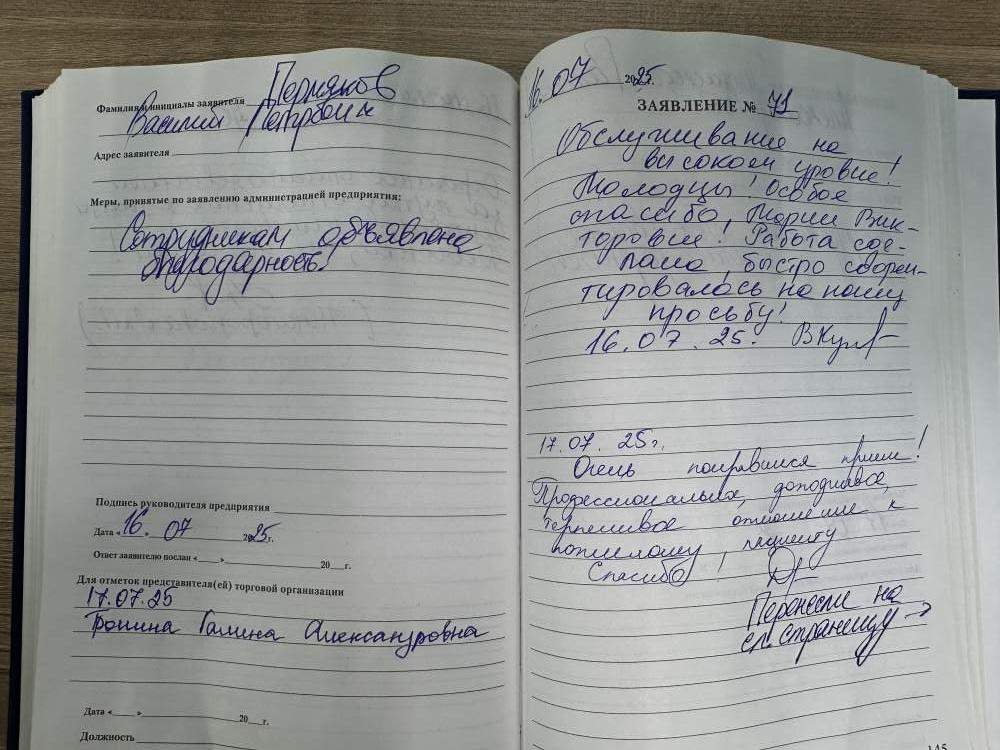 Фамилия и инициалы заявителя Пермяков
Василий Петрович
Адрес заявителя
Меры, принятые по заявлению администрацией предприятия:
Сотрудникам объявлена
благодарность!
Подпись руководителя предприятия
Дата «16. 07 2025г.
Ответ заявителю послан «___» 20__г.
Для отметок представителя(ей) торговой организации
17.07.25
Галина Александровна
Дата «___» 20__г.
Должность
16. 07 2025г.
ЗАЯВЛЕНИЕ № 71
Обслуживание на
высоком уровне!
Молодцы! Особое
спасибо, Марии Вик-
торовне! Работа сде-
лана, быстро сориен-
тировалась на нашу
просьбу!
16.07.25.
17.07.25г.
Очень понравился прием!
Профессиональных, доходчивое,
терпеливое отношение к
пожилому, пациенту
Спасибо!
Перенесли на
сл. страницу →
145